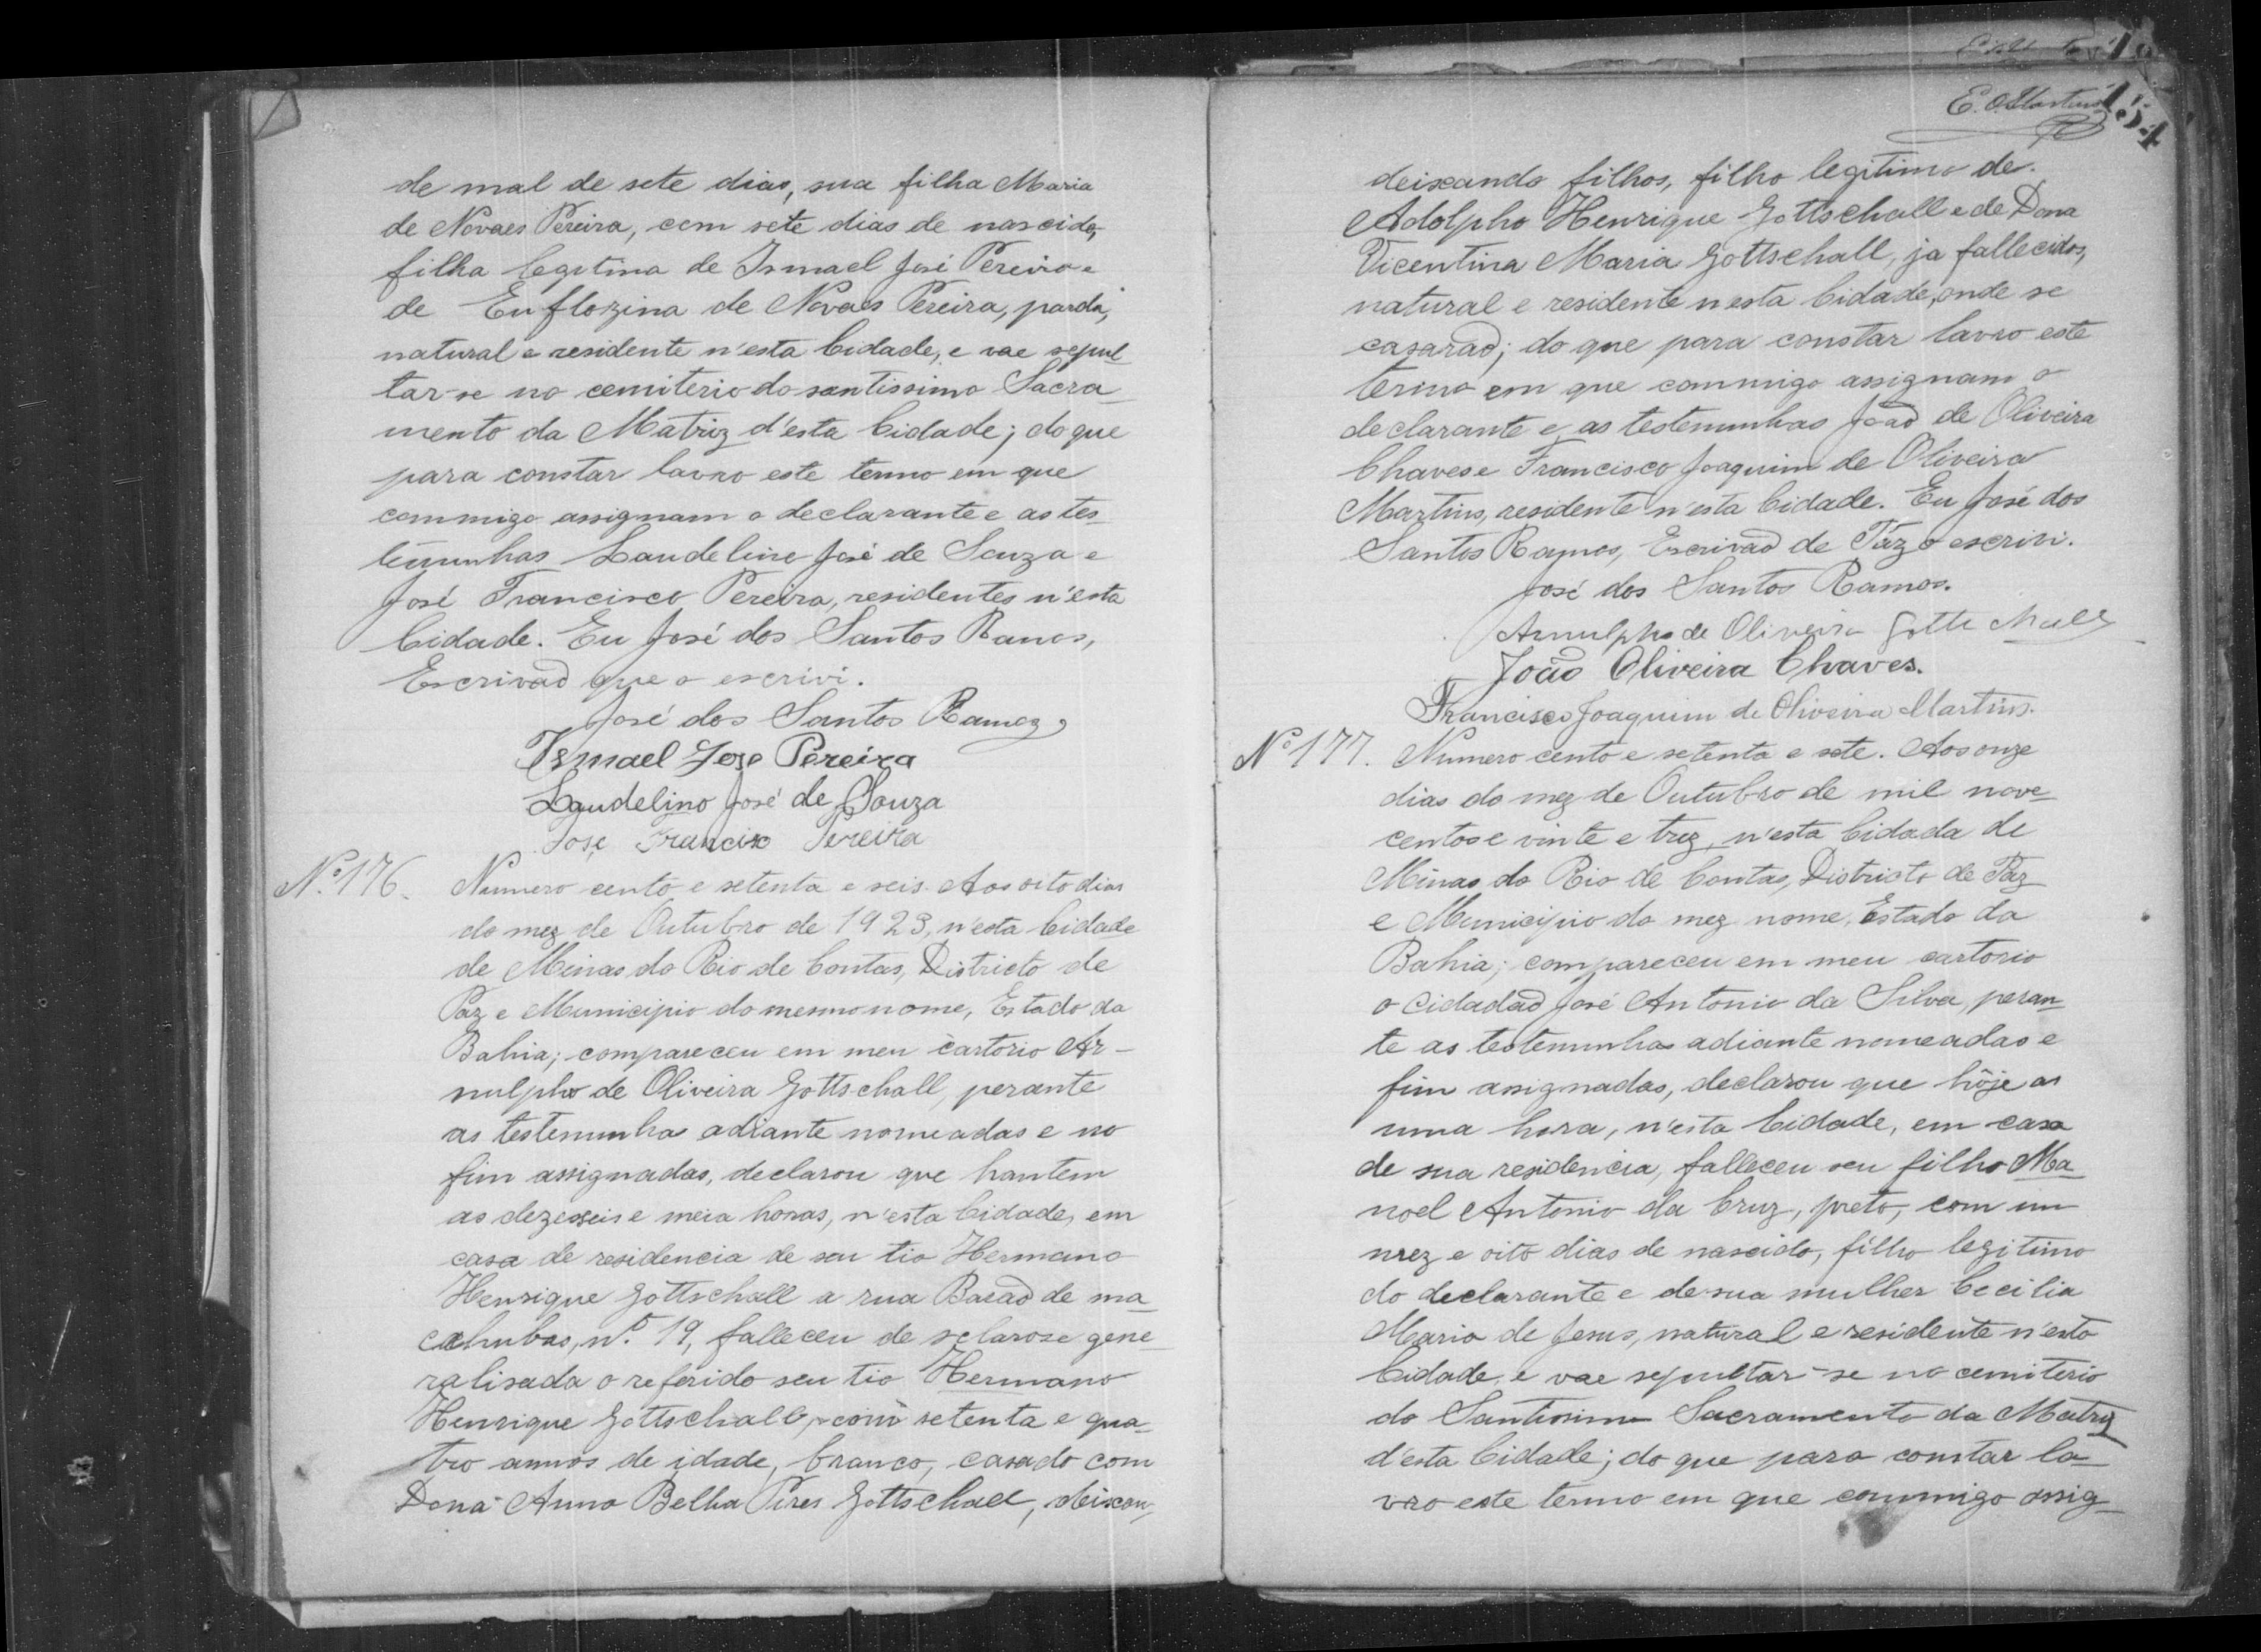 de mal de sete dias, sua filha Maria
de Novaes Pereira, com sete dias de nascida,
filha legitima de Ismael José Pereira e
de Euflozina de Novaes Pereira, parda,
natural e residente n'esta Cidade, e vae sepul
tar-se no cemiterio do santissimo Sacra
mento da Matriz d'esta Cidade; do que
para constar lavro este termo em que
commigo assignam o declarante e as tes
temunhas Laudelino José de Souza e
José Francisco Pereira, residentes n'esta
Cidade. Eu José dos Santos Ramos,
Escrivaõ que o escrivi.
José dos Santos Ramos
Ismael Jose Pereira
Laudelino José de Souza
Jose Francisco Pereira
Nº 176. Numero cento e setenta e seis. Aos oito dias
do mez de Outubro de 1923, n'esta Cidade
de Minas do Rio de Contas, Districto de
Paz e Municipio do mesmo nome, Estado da
Bahia; compareceu em meu cartorio Ar-
nulpho de Oliveira Gottschall, perante
as testemunhas adiante nomeadas e no
fim assignadas, declarou que hantem
as dezesseis e meia horas, n'esta Cidade, em
casa de residencia de seu tio Hermano
Henrique Gottschall a rua Baraõ de ma
cahubas, nº. 19, falleceu de sclarose gene
ralisada o referido seu tio Hermano
Henrique Gottschall, com setenta e qua-
tro annos de idade, branco, casado com
Dona Anna Belha Pires Gottschall, deixan-
E. O. Martins
154
deixando filhos, filho legitimo de
Adolpho Henrique Gottschall e de Dona
Vicentina Maria Gottschall, ja fallecidos,
natural e residente n'esta Cidade, onde se
casaraõ; do que para constar lavro este
termo em que commigo assignam o
declarante e as testemunhas Joaõ de Oliveira
Chaves e Francisco Joaquim de Oliveira
Martins, residente n'esta Cidade. Eu José dos
Santos Ramos, Escrivaõ de Páz o escrivi.
José dos Santos Ramos.
Arnulpho de Oliveira Gottschall
João Oliveira Chaves.
Francisco Joaquim de Oliveira Martins.
Nº 177. Numero cento e setenta e sete. Aos onze
dias do mez de Outubro de mil nove-
centos e vinte e trez, n'esta Cidada de
Minas do Rio de Contas, Districto de Paz
e Municipio do mez nome, Estado da
Bahia; compareceu em meu cartorio
o Cidadaõ José Antonio da Silva, peran-
te as testemunhas adiante nomeadas e
fim assignadas, declarou que hôje as
uma hora, n'esta Cidade, em casa
de sua residencia, falleceu seu filho Ma-
noel Antonio da Cruz, preto, com um
mez e oito dias de nascido, filho legitimo
do declarante e de sua mulher Cecilia
Maria de Jesus, natural e residente n'esta
Cidade, e vae sepultar-se no cemiterio
do Santissimo Sacramento da Matriz
d'esta Cidade; do que para constar la-
vro este termo em que commigo assig-